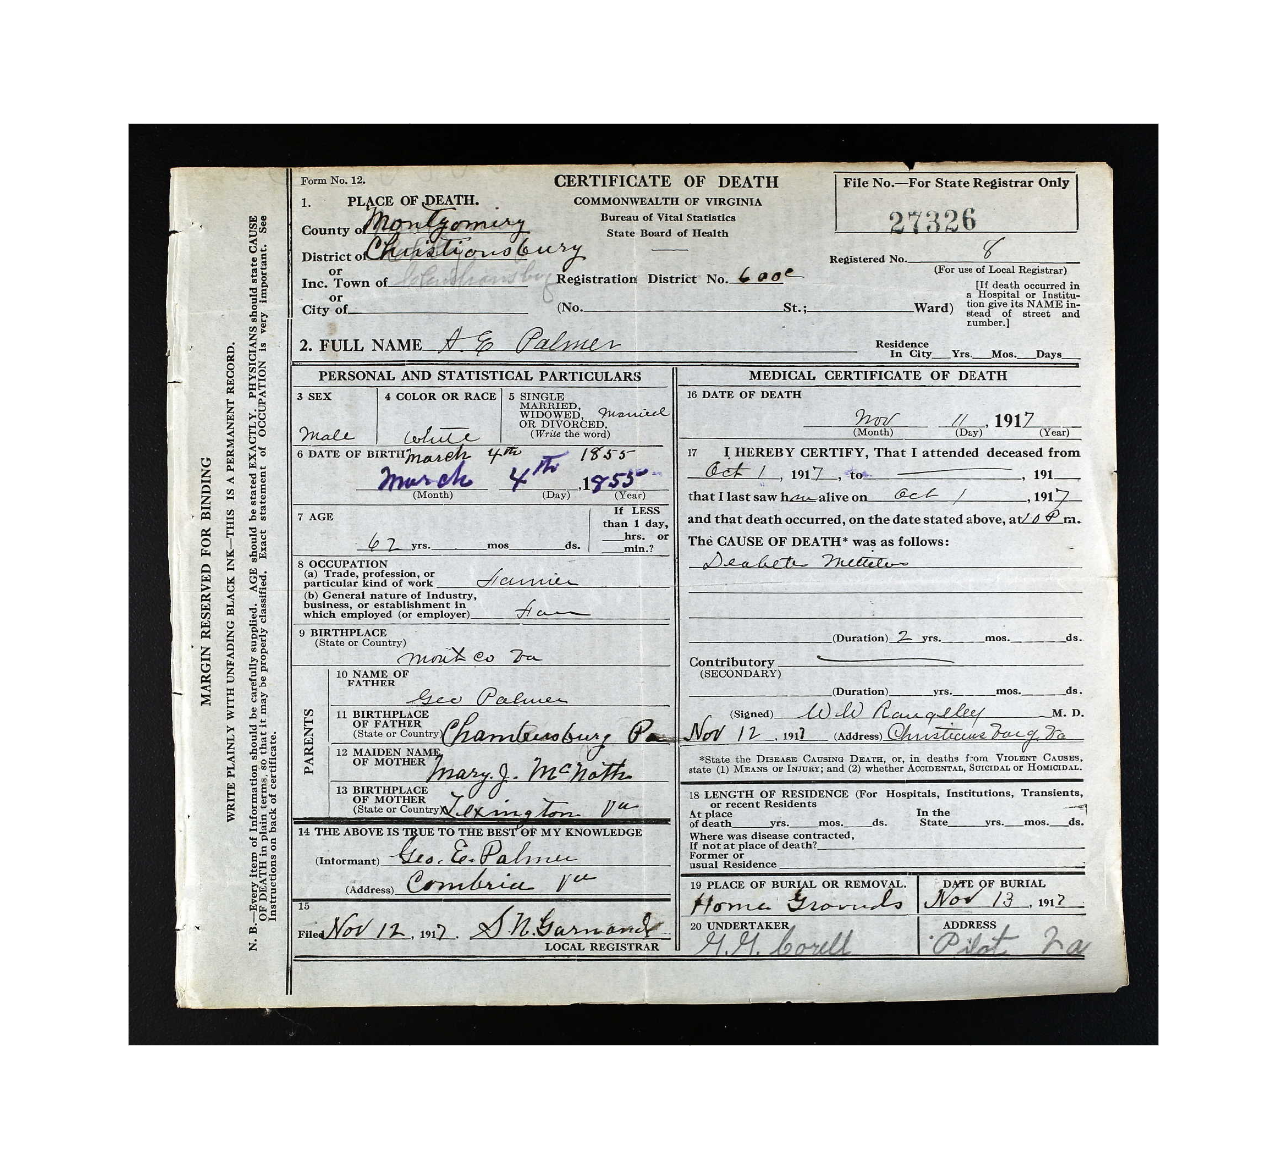 Form No. 12.
CERTIFICATE OF DEATH
COMMONWEALTH OF VIRGINIA
Bureau of Vital Statistics
State Board of Health
File No.—For State Registrar Only
27326
1. PLACE OF DEATH.
County of Montgomery
District of Christiansburg
or
Inc. Town of Christiansburg
or
City of
Registration District No. 600c
Registered No. 8
(For use of Local Registrar)
(No. St.; Ward)
[If death occurred in
a Hospital or Institu-
tion give its NAME in-
stead of street and
number.]
2. FULL NAME A E Palmer
Residence
In City Yrs. Mos. Days
PERSONAL AND STATISTICAL PARTICULARS
3 SEX
Male
4 COLOR OR RACE
White
5 SINGLE
MARRIED,
WIDOWED,
OR DIVORCED.
(Write the word)
Married
6 DATE OF BIRTH March 4th 1855
March 4th, 1855
(Month) (Day) (Year)
7 AGE
62 yrs. mos ds.
If LESS
than 1 day,
hrs. or
min.?
8 OCCUPATION
(a) Trade, profession, or
particular kind of work Farmer
(b) General nature of Industry,
business, or establishment in
which employed (or employer) Farm
9 BIRTHPLACE
(State or Country)
Mont Co Va
PARENTS
10 NAME OF
FATHER
Geo Palmer
11 BIRTHPLACE
OF FATHER
(State or Country) Chambersburg Pa
12 MAIDEN NAME
OF MOTHER Mary. J. McNath
13 BIRTHPLACE
OF MOTHER
(State or Country) Lexington Va
14 THE ABOVE IS TRUE TO THE BEST OF MY KNOWLEDGE
(Informant) Geo. E. Palmer
(Address) Cambria Va
15
Filed Nov 12, 1917. S. N.
LOCAL REGISTRAR
MEDICAL CERTIFICATE OF DEATH
16 DATE OF DEATH
Nov 11, 1917
(Month) (Day) (Year)
17 I HEREBY CERTIFY, That I attended deceased from
Oct 1, 1917, to , 191
that I last saw him alive on Oct 1, 1917
and that death occurred, on the date stated above, at 10 P m.
The CAUSE OF DEATH* was as follows:
Diabetes Mellitus
(Duration) 2 yrs. mos. ds.
Contributory
(SECONDARY)
(Duration) yrs. mos. ds.
(Signed) W W Rangelley M. D.
Nov 12, 1917 (Address) Christiansburg Va
*State the DISEASE CAUSING DEATH, or, in deaths from VIOLENT CAUSES,
state (1) MEANS OF INJURY; and (2) whether ACCIDENTAL, SUICIDAL or HOMICIDAL.
18 LENGTH OF RESIDENCE (For Hospitals, Institutions, Transients,
or recent Residents
At place
of death yrs. mos. ds.
In the
State yrs. mos. ds.
Where was disease contracted,
If not at place of death?
Former or
usual Residence
19 PLACE OF BURIAL OR REMOVAL.
Home Grounds
DATE OF BURIAL
Nov 13, 1917
20 UNDERTAKER
G. G. Corell
ADDRESS
Pilot Va
MARGIN RESERVED FOR BINDING
WRITE PLAINLY WITH UNFADING BLACK INK—THIS IS A PERMANENT RECORD.
N. B.—Every item of Information should be carefully supplied. AGE should be stated EXACTLY. PHYSICIANS should state CAUSE
OF DEATH in plain terms, so that it may be properly classified. Exact statement of OCCUPATION is very important. See
Instructions on back of certificate.